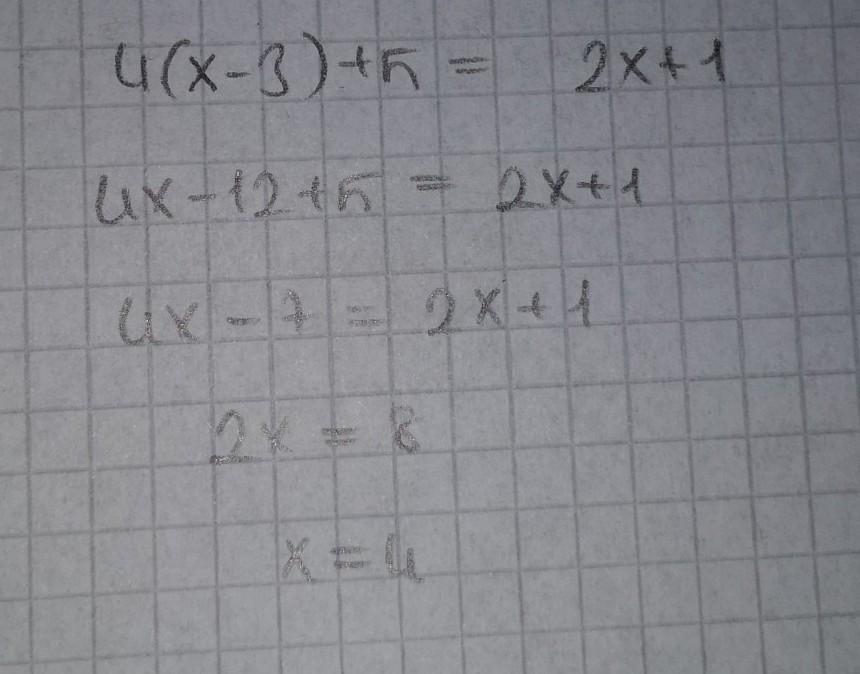 4(x-3)+5 = 2x+1
4x-12+5 = 2x+1
4x-7 = 2x+1
2x = 8
x = 4